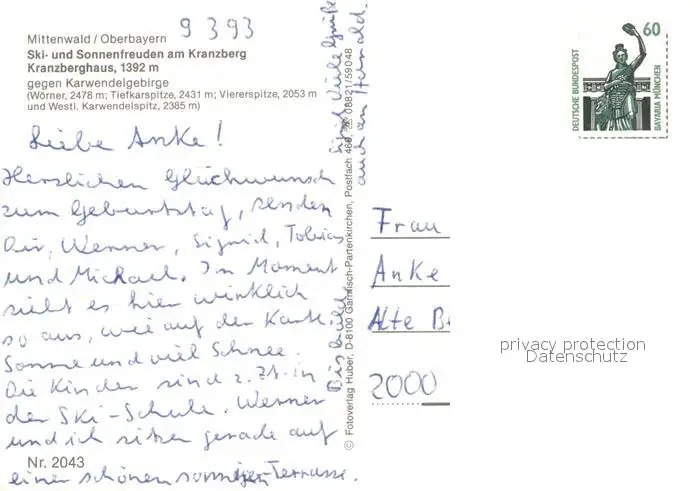 9 3 93
Mittenwald / Oberbayern
Ski- und Sonnenfreuden am Kranzberg
Kranzberghaus, 1392 m
gegen Karwendelgebirge
(Wörner, 2478 m; Tiefkarspitze, 2431 m; Viererspitze, 2053 m
und Westl. Karwendelspitz, 2385 m)
Liebe Anke!
Herzlichen Glückwunsch
zum Geburtstag, senden
Dir, Werner, Sigrid, Tobias
und Michael. Im Moment
sieht es hier wirklich
so aus, wie auf der Karte.
Sonne und viel Schnee.
Die Kinder sind z. Zt. in
der Ski-Schule. Werner
und ich sitzen gerade auf
einer schönen sonnigen Terrasse.
Nr. 2043
Bis bald
Sigrid Viele Grüße
auch an
© Fotoverlag Huber, D-8100 Garmisch-Partenkirchen, Postfach 466, ☏ 08821/59048
60
DEUTSCHE BUNDESPOST
BAVARIA MÜNCHEN
Frau
Anke
Alte
2000
privacy protection
Datenschutz